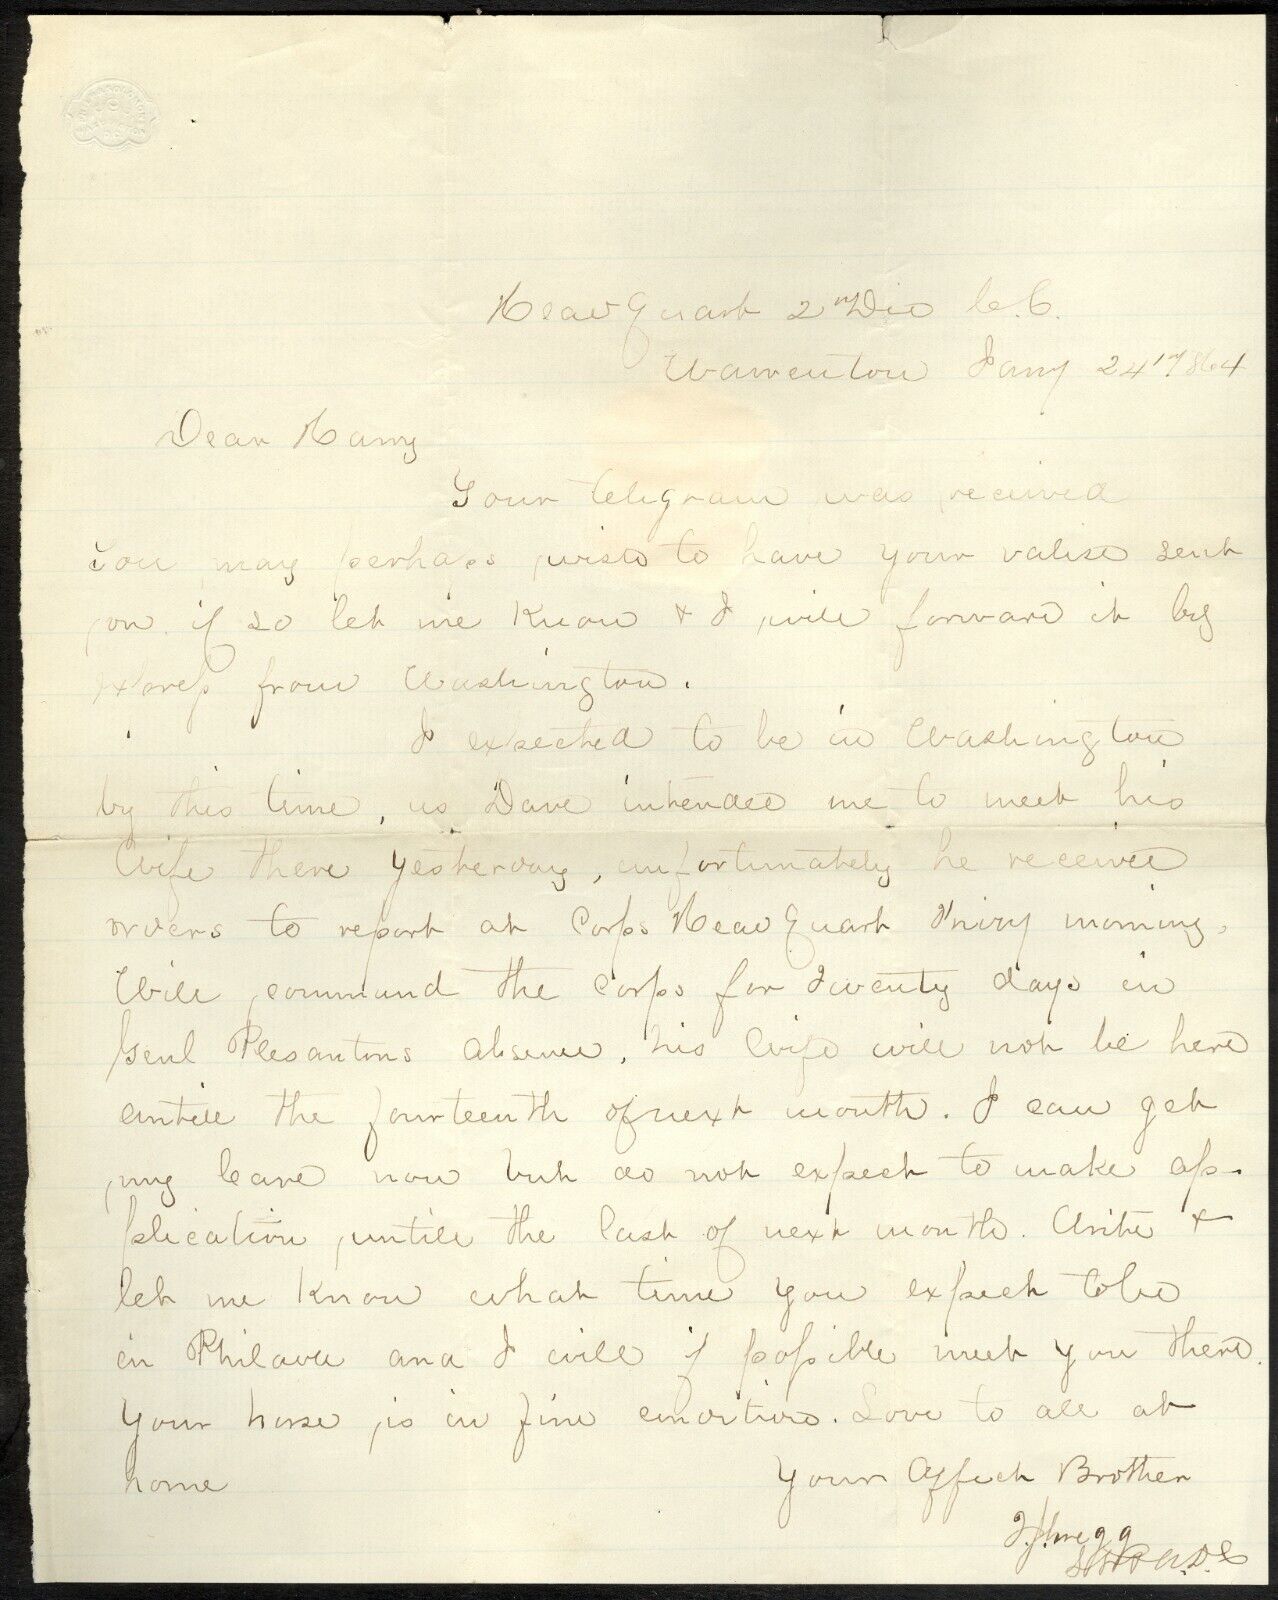 Head Quart 2nd Div C.C.
Warrenton Jany 24th 1864
Dear Harry
Your telegram was received
You may perhaps wish to have your valise sent
on if so let me Know & I will forward it by
Express from Washington.
I expected to be in Washington
by this time, as Dave intended me to meet his
Wife there yesterday, unfortunately he received
orders to report at Corps Head Quart Friday morning,
Will command the Corps for Twenty days in
Genl Plesantons absence, his Wife will not be here
untill the fourteenth of next month. I can get
my leave now but do not expect to make ap-
plication untill the last of next month. Write &
let me Know what time you expect to be
in Philada and I will if possible meet you there.
Your horse is in fine condition. Love to all at
home Your Affect Brother
Gregg